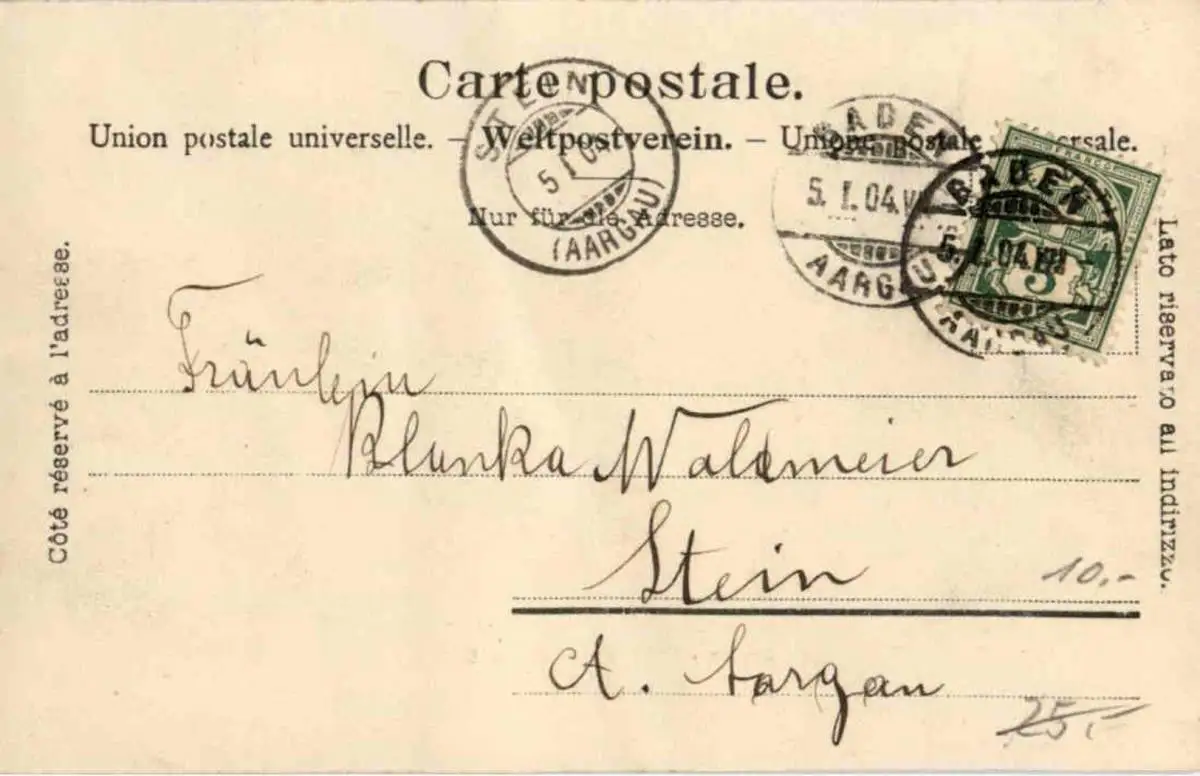 Carte postale.
Union postale universelle. – Weltpostverein. – Unione postale universale.
Nur für die Adresse.
STEIN
5 I 04
(AARGAU)
BADEN
5. I. 04. VII
AARGAU
BADEN
5. I. 04. VII –
AARGAU
FRANCO
5
Côté réservé à l'adresse.
Lato riservato all indirizzo.
Fräulein
Blanka Waldmeier
Stein
10.-
Ct. Aargau
25.-